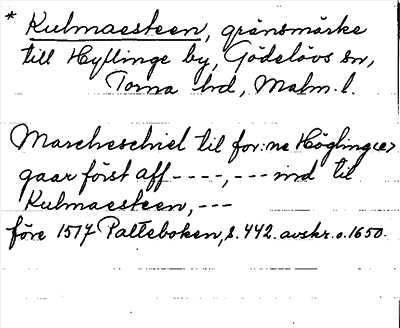 * Kulmaesteen, gränsmärke
till Hyllinge by, Gödelövs sn,
Torna hd, Malm. l.
Marcheschiel til for:ne Högling<e>
gaar först aff ----, --- ind til
Kulmaesteen, ---
före 1517 Palteboken, s. 442. avskr. o. 1650.